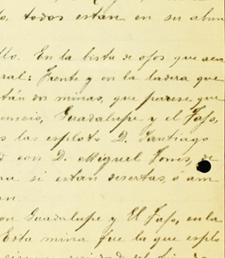 todos estan en su abun
llo. En la lista de ojos que aca
ral: Frente y en la ladera que
tán dos minas, que parese que
Guadalupe y el Tajo,
las esplotó D. Santiago
con D. Miguel
si están desertas, ó am
on Guadalupe y El Tajo, en la
Esta mina fue la que esplo